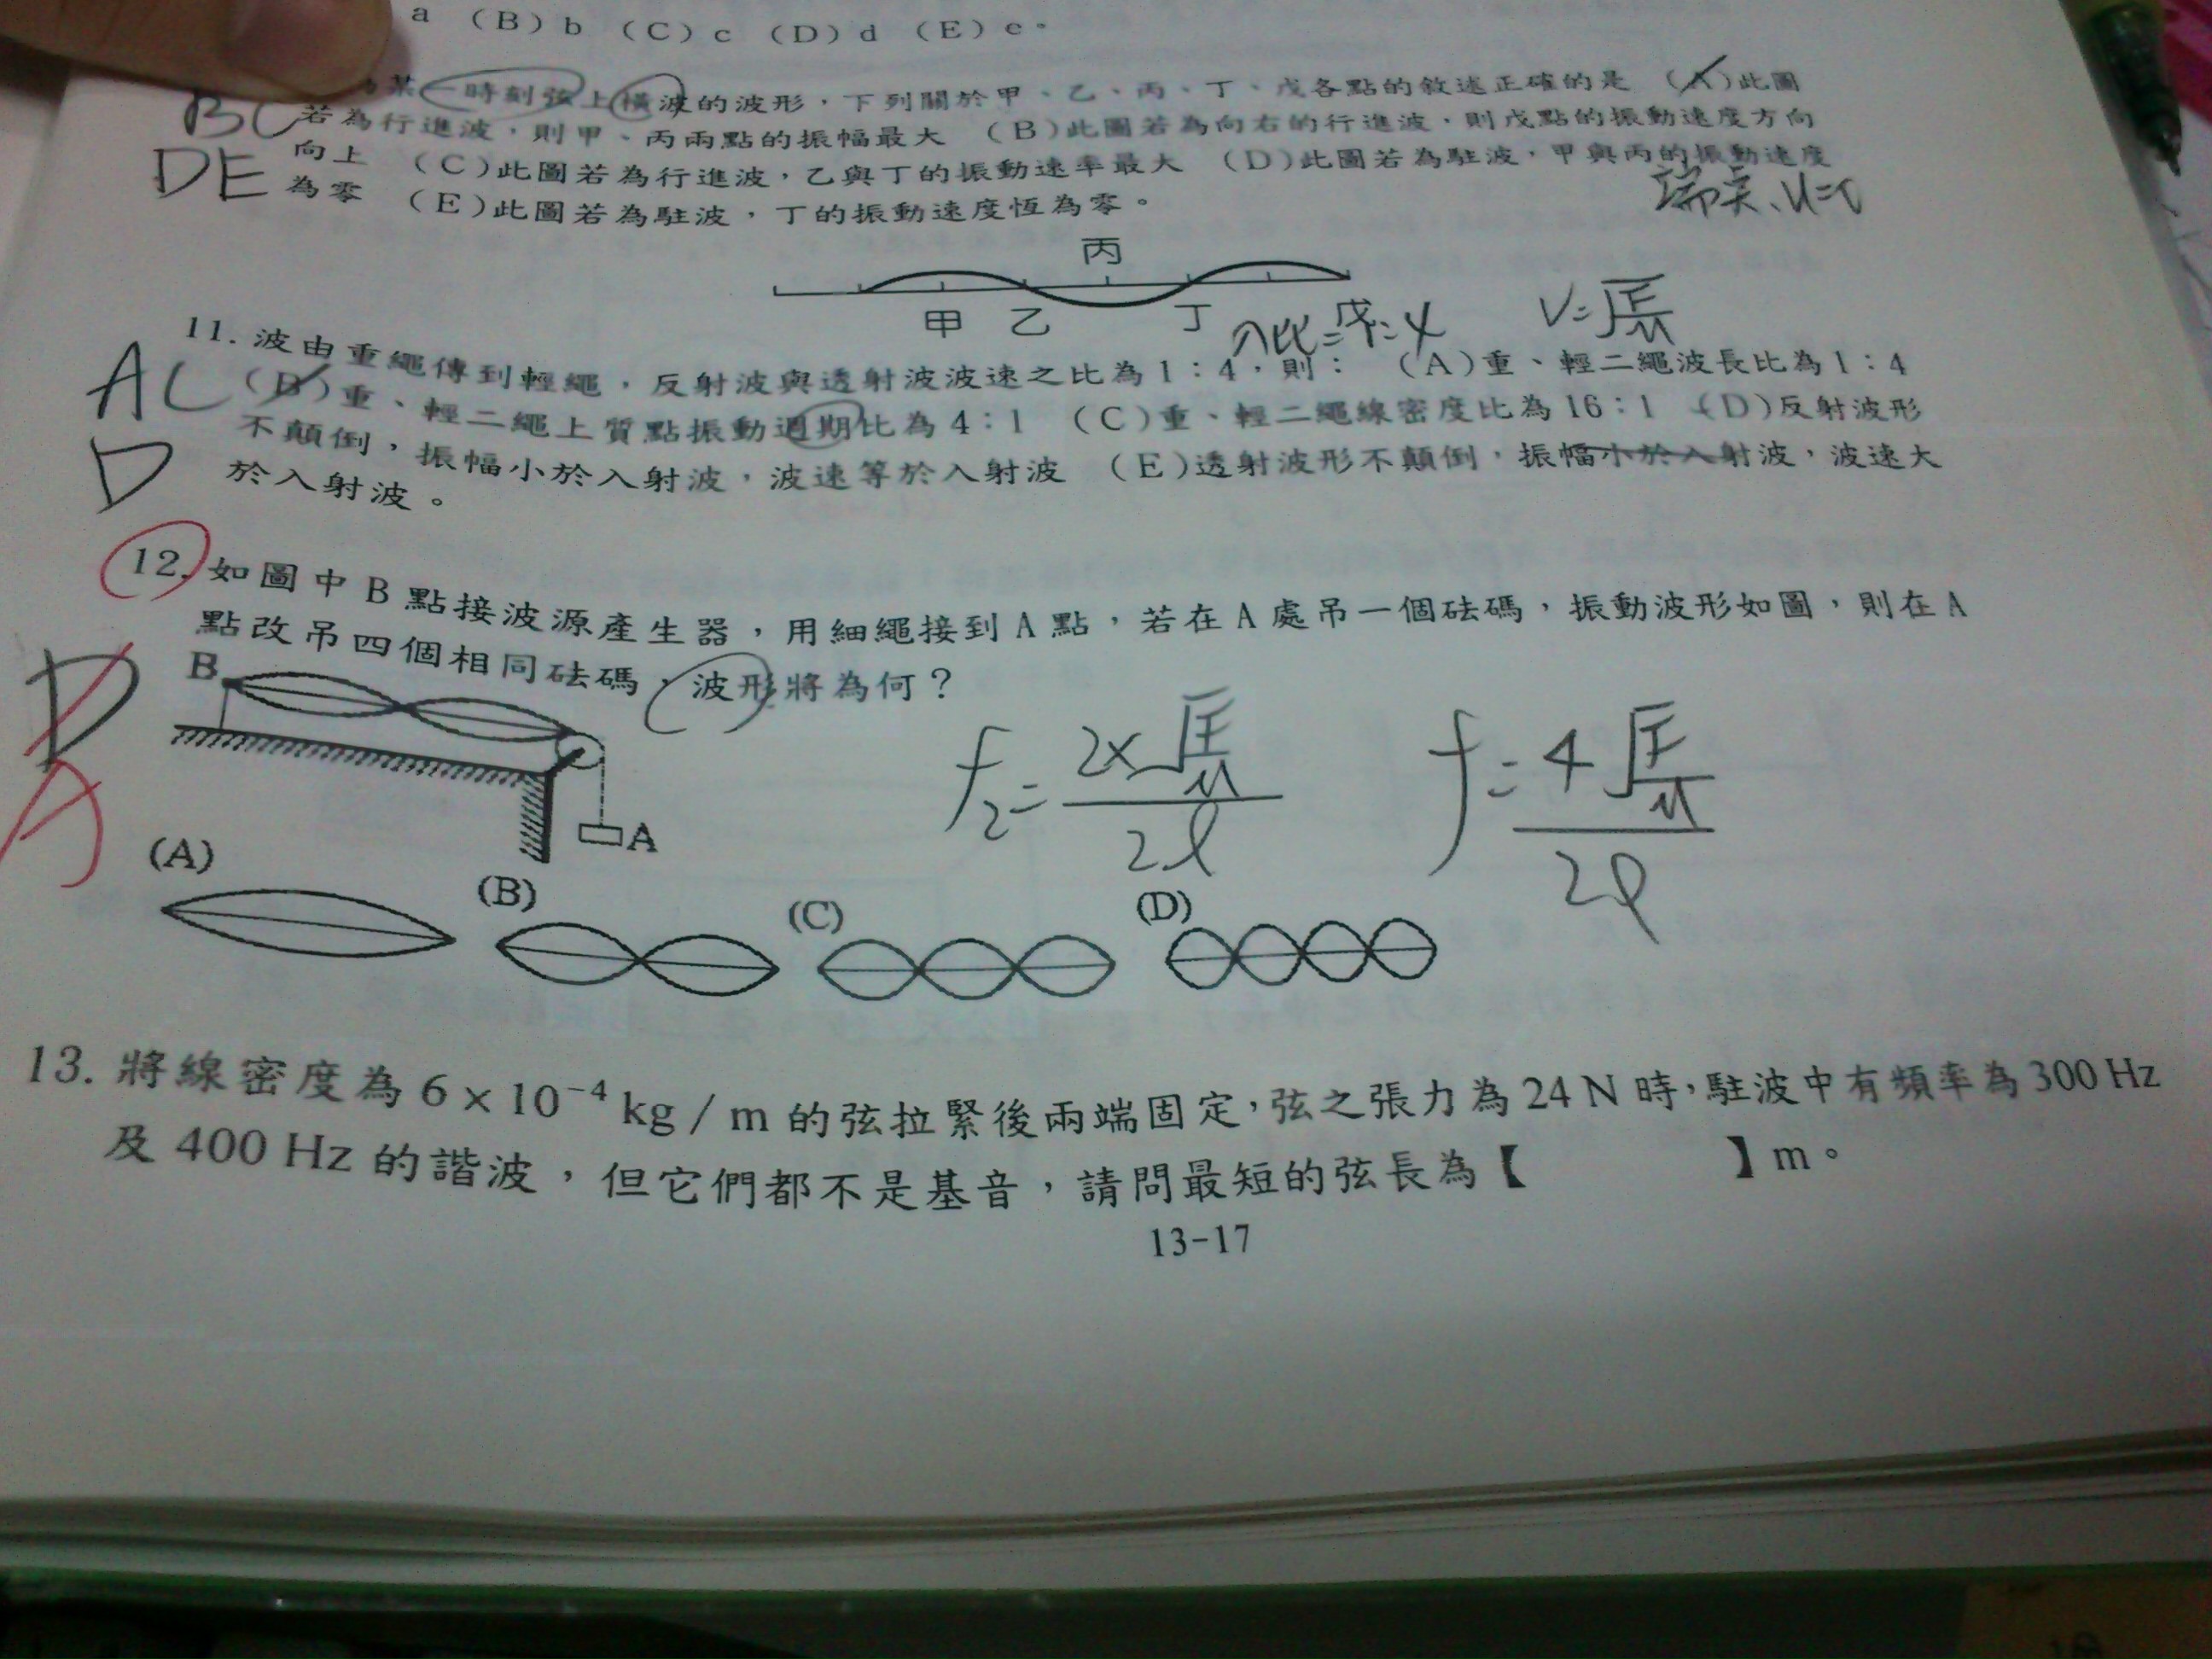 a （B）b （C）c （D）d （E）e。
某一時刻弦上橫波的波形，下列關於甲、乙、丙、丁、戊各點的敘述正確的是 （A）此圖
若為行進波，則甲、丙兩點的振幅最大 （B）此圖若為向右的行進波，則戊點的振動速度方向
向上 （C）此圖若為行進波，乙與丁的振動速率最大 （D）此圖若為駐波，甲與丙的振動速度
為零 （E）此圖若為駐波，丁的振動速度恆為零。
BC
DE
端點、u=0
丙
甲 乙 丁 戊
λ比=1:4
V=√F/μ
11. 波由重繩傳到輕繩，反射波與透射波波速之比為1：4，則： （A）重、輕二繩波長比為1：4
（B）重、輕二繩上質點振動週期比為4：1 （C）重、輕二繩線密度比為16：1 （D）反射波形
不顛倒，振幅小於入射波，波速等於入射波 （E）透射波形不顛倒，振幅小於入射波，波速大
於入射波。
AC
D
12. 如圖中B點接波源產生器，用細繩接到A點，若在A處吊一個砝碼，振動波形如圖，則在A
點改吊四個相同砝碼，波形將為何？
D
A
B
A
f₂=2×√F/μ / 2ℓ
f=4√F/μ / 2ℓ
(A) (B) (C) (D)
13. 將線密度為 6 × 10⁻⁴ kg / m 的弦拉緊後兩端固定，弦之張力為 24 N 時，駐波中有頻率為 300 Hz
及 400 Hz 的諧波，但它們都不是基音，請問最短的弦長為【 】m。
13-17